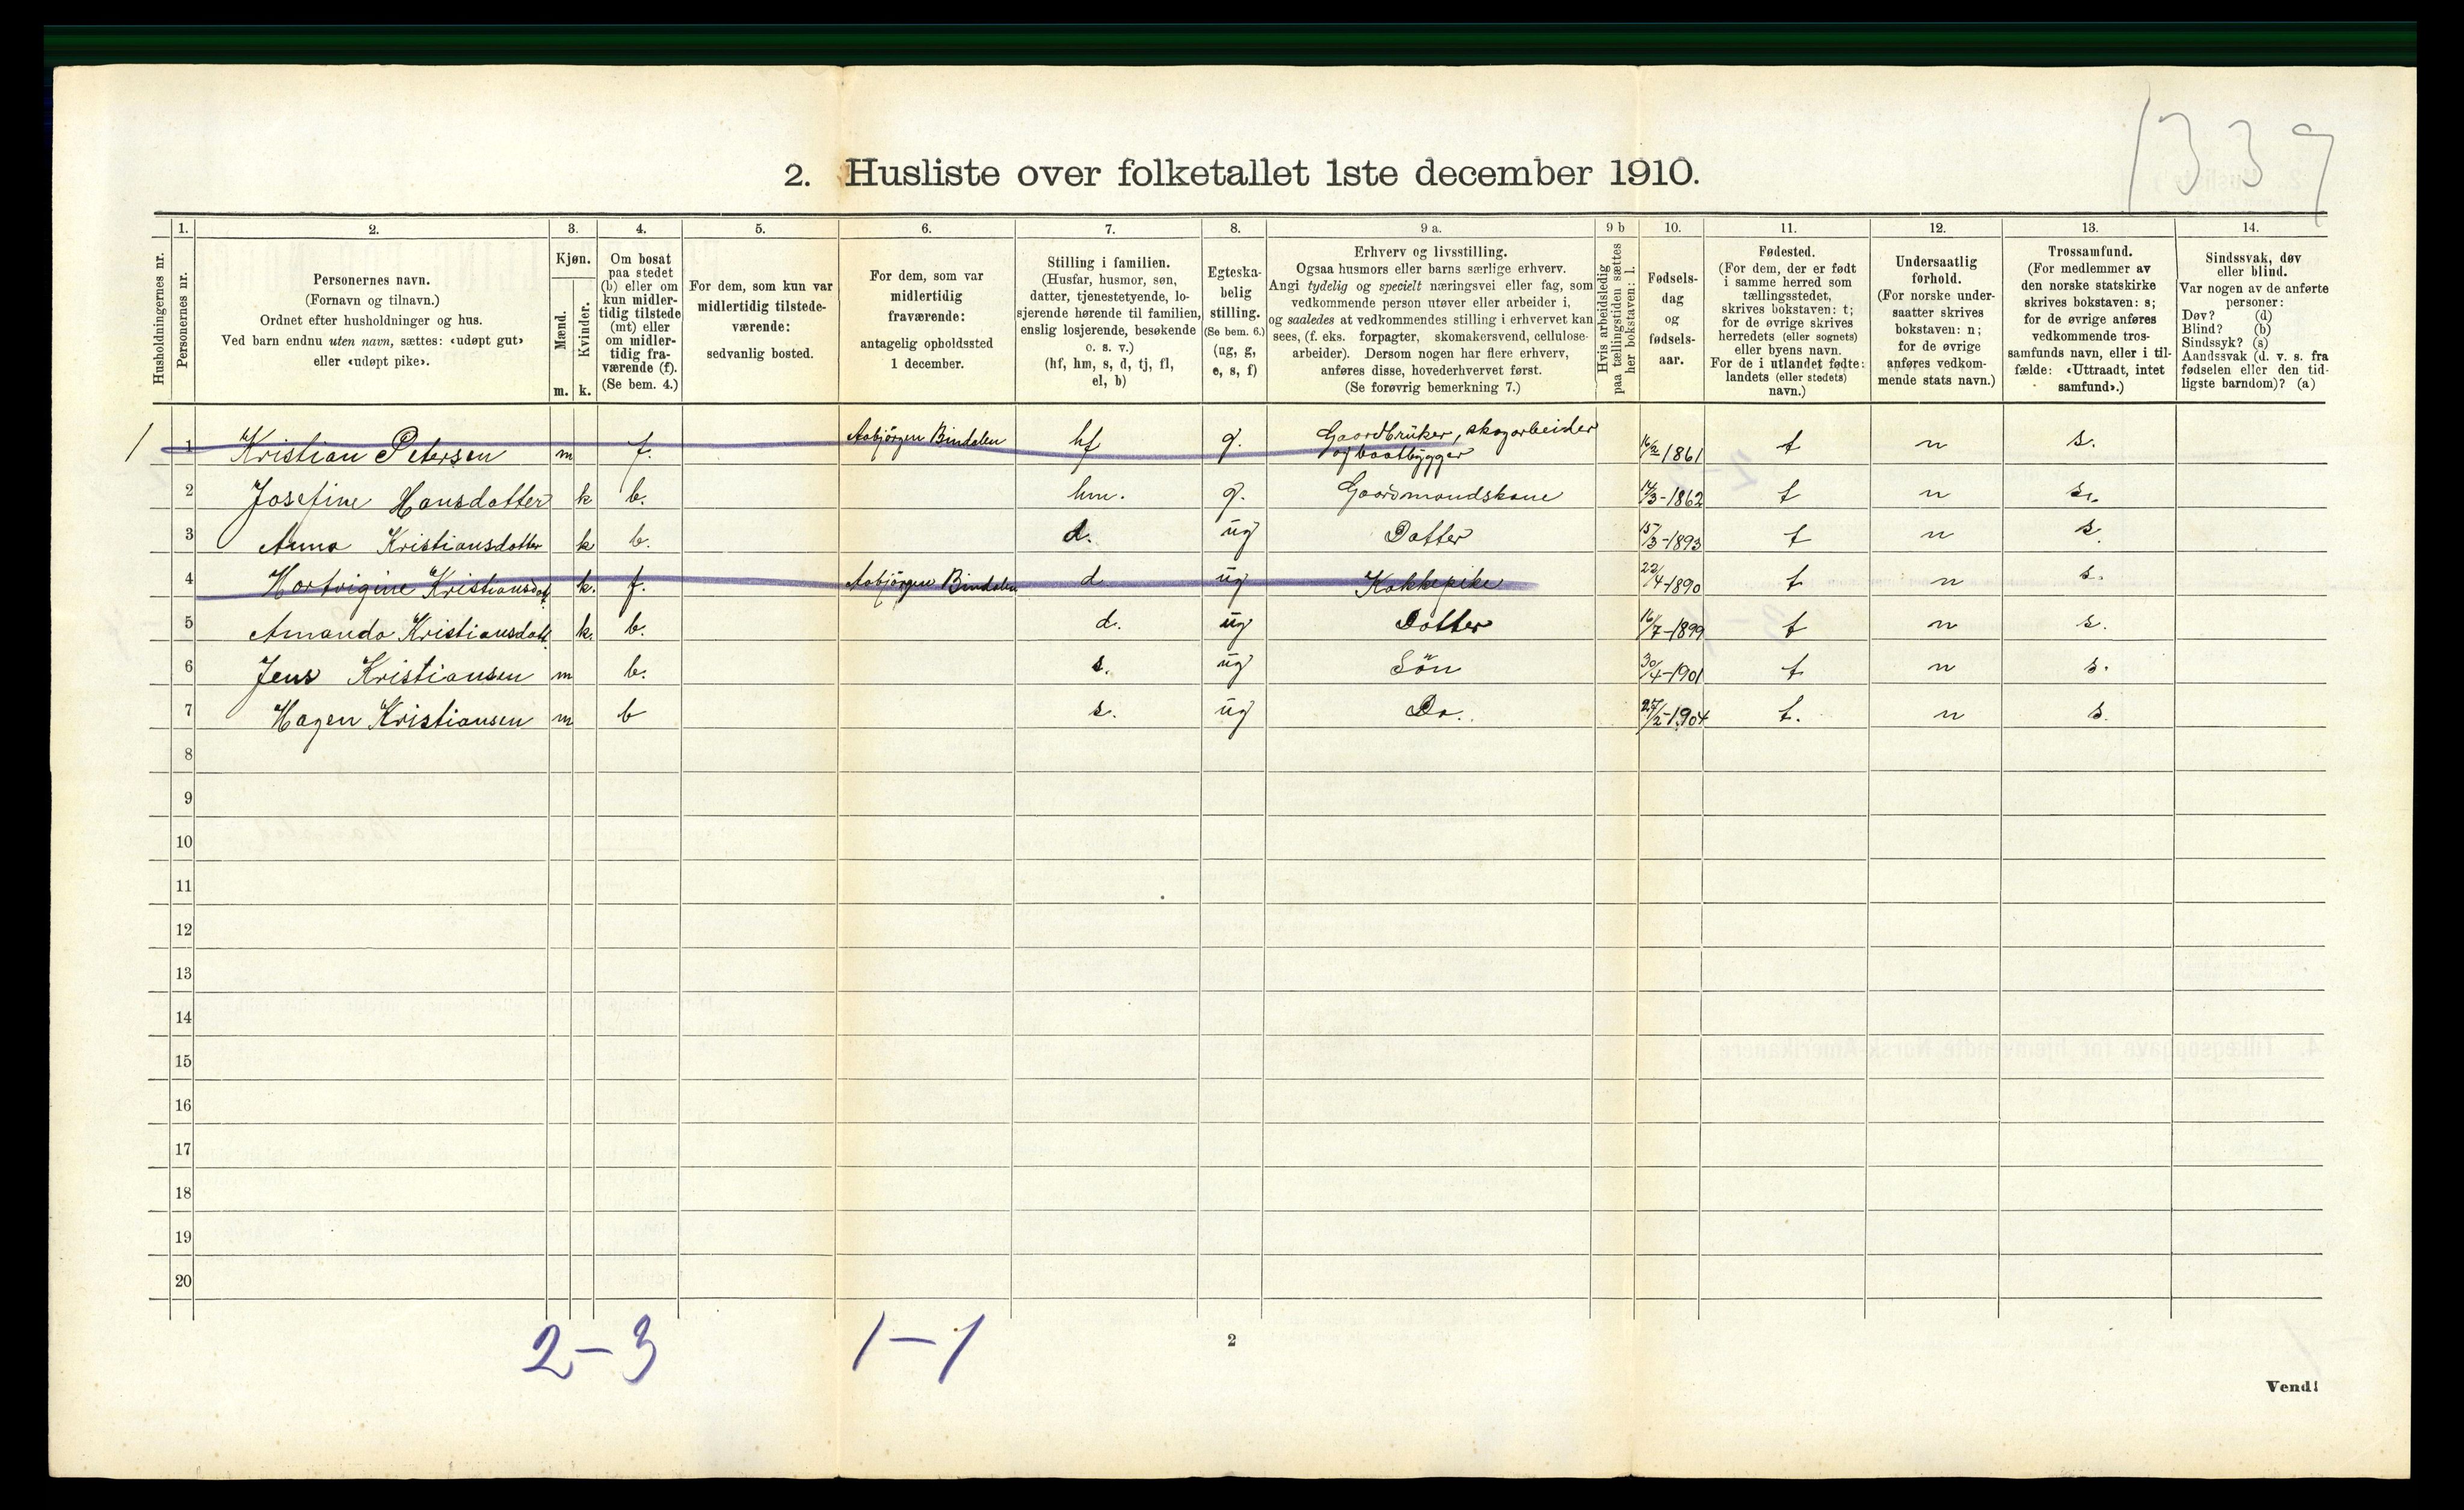 1339
2. Husliste over folketallet 1ste december 1910.
Husholdningernes nr.
1.
Personernes nr.
2.
Personernes navn.
(Fornavn og tilnavn.)
Ordnet efter husholdninger og hus.
Ved barn endnu uten navn, sættes: «udøpt gut»
eller «udøpt pike».
3.
Kjøn.
Mænd.
Kvinder.
m. k.
4.
Om bosat
paa stedet
(b) eller om
kun midler-
tidig tilstede
(mt) eller
om midler-
tidig fra-
værende (f).
(Se bem. 4.)
5.
For dem, som kun var
midlertidig tilstede-
værende:
sedvanlig bosted.
6.
For dem, som var
midlertidig
fraværende:
antagelig opholdssted
1 december.
7.
Stilling i familien.
(Husfar, husmor, søn,
datter, tjenestetyende, lo-
sjerende hørende til familien,
enslig losjerende, besøkende
o. s. v.)
(hf, hm, s, d, tj, fl,
el, b)
8.
Egteska-
belig
stilling.
(Se bem. 6.)
(ug, g,
e, s, f)
9 a.
Erhverv og livsstilling.
Ogsaa husmors eller barns særlige erhverv.
Angi tydelig og specielt næringsvei eller fag, som
vedkommende person utøver eller arbeider i,
og saaledes at vedkommendes stilling i erhvervet kan
sees, (f. eks. forpagter, skomakersvend, cellulose-
arbeider). Dersom nogen har flere erhverv,
anføres disse, hovederhvervet først.
(Se forøvrig bemerkning 7.)
9 b
Hvis arbeidsledig
paa tællingstiden sættes
her bokstaven: l.
10.
Fødsels-
dag
og
fødsels-
aar.
11.
Fødested.
(For dem, der er født
i samme herred som
tællingsstedet,
skrives bokstaven: t;
for de øvrige skrives
herredets (eller sognets)
eller byens navn.
For de i utlandet fødte:
landets (eller stedets)
navn.)
12.
Undersaatlig
forhold.
(For norske under-
saatter skrives
bokstaven: n;
for de øvrige
anføres vedkom-
mende stats navn.)
13.
Trossamfund.
(For medlemmer av
den norske statskirke
skrives bokstaven: s;
for de øvrige anføres
vedkommende tros-
samfunds navn, eller i til-
fælde: «Uttraadt, intet
samfund».)
14.
Sindssvak, døv
eller blind.
Var nogen av de anførte
personer:
Døv? (d)
Blind? (b)
Sindssyk? (s)
Aandssvak (d. v. s. fra
fødselen eller den tid-
ligste barndom)? (a)
1 1 Kristian Petersen m f. Aabjörgen Bindalen hf g. Gaardbrüker, skogarbeider og baatbygger 16/2 1861 t n s.
2 Josefine Hansdatter k b. hm. g. Gaardmandskone 14/3-1862 t n s.
3 Anna Kristiansdatter k b. d. ug Datter 15/3-1893 t n s.
4 Hartvigine Kristiansdat. k. f. Aabjörgen Bindalen d ug Kokkepike 22/4-1890 t n s.
5 Amanda Kristiansdatt. k. b. d. ug Datter 16/7-1899 t n s.
6 Jens Kristiansen m b. s. ug Sön 30/4-1901 t n s.
7 Hagen Kristiansen m b s. ug Do. 27/2-1904 t. n s.
8
9
10
11
12
13
14
15
16
17
18
19
20
2-3 1-1
2
Vend!